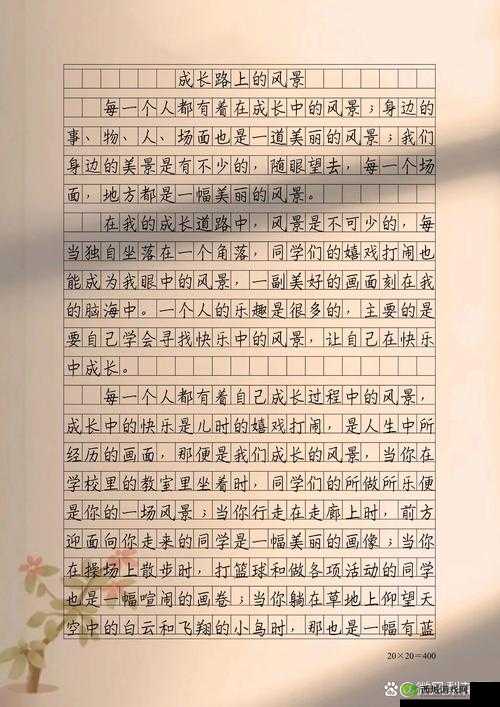 成长路上的风景
每一个人都有着在成长中的风景；身边的
事、物、人、场面也是一道美丽的风景；我们
身边的美景是有不少的，随眼望去，每一个场
面，地方都是一幅美丽的风景。
在我的成长道路中，风景是不可少的，每
当独自坐落在一个角落，同学们的嬉戏打闹也
能成为我眼中的风景，一副美好的画面刻在我
的脑海中。一个人的乐趣是很多的，主要的是
要自己学会寻找快乐中的风景，让自己在快乐
中成长。
每一个人都有着自己成长过程中的风景，
成长中的快乐是儿时的嬉戏打闹，是人生中所
经历的画面，那便是我们成长的风景，当你在
学校里的教室里坐着时，同学们的所做所乐便
是你的一场风景；当你行走在走廊上时，前方
迎面向你走来的同学是一幅美丽的画像；当你
在操场上散步时，打篮球和做各项活动的同学
也是一幅喧闹的画卷；当你躺在草地上仰望天
空中的白云和飞翔的小鸟时，那也是一幅有蓝
20×20=400